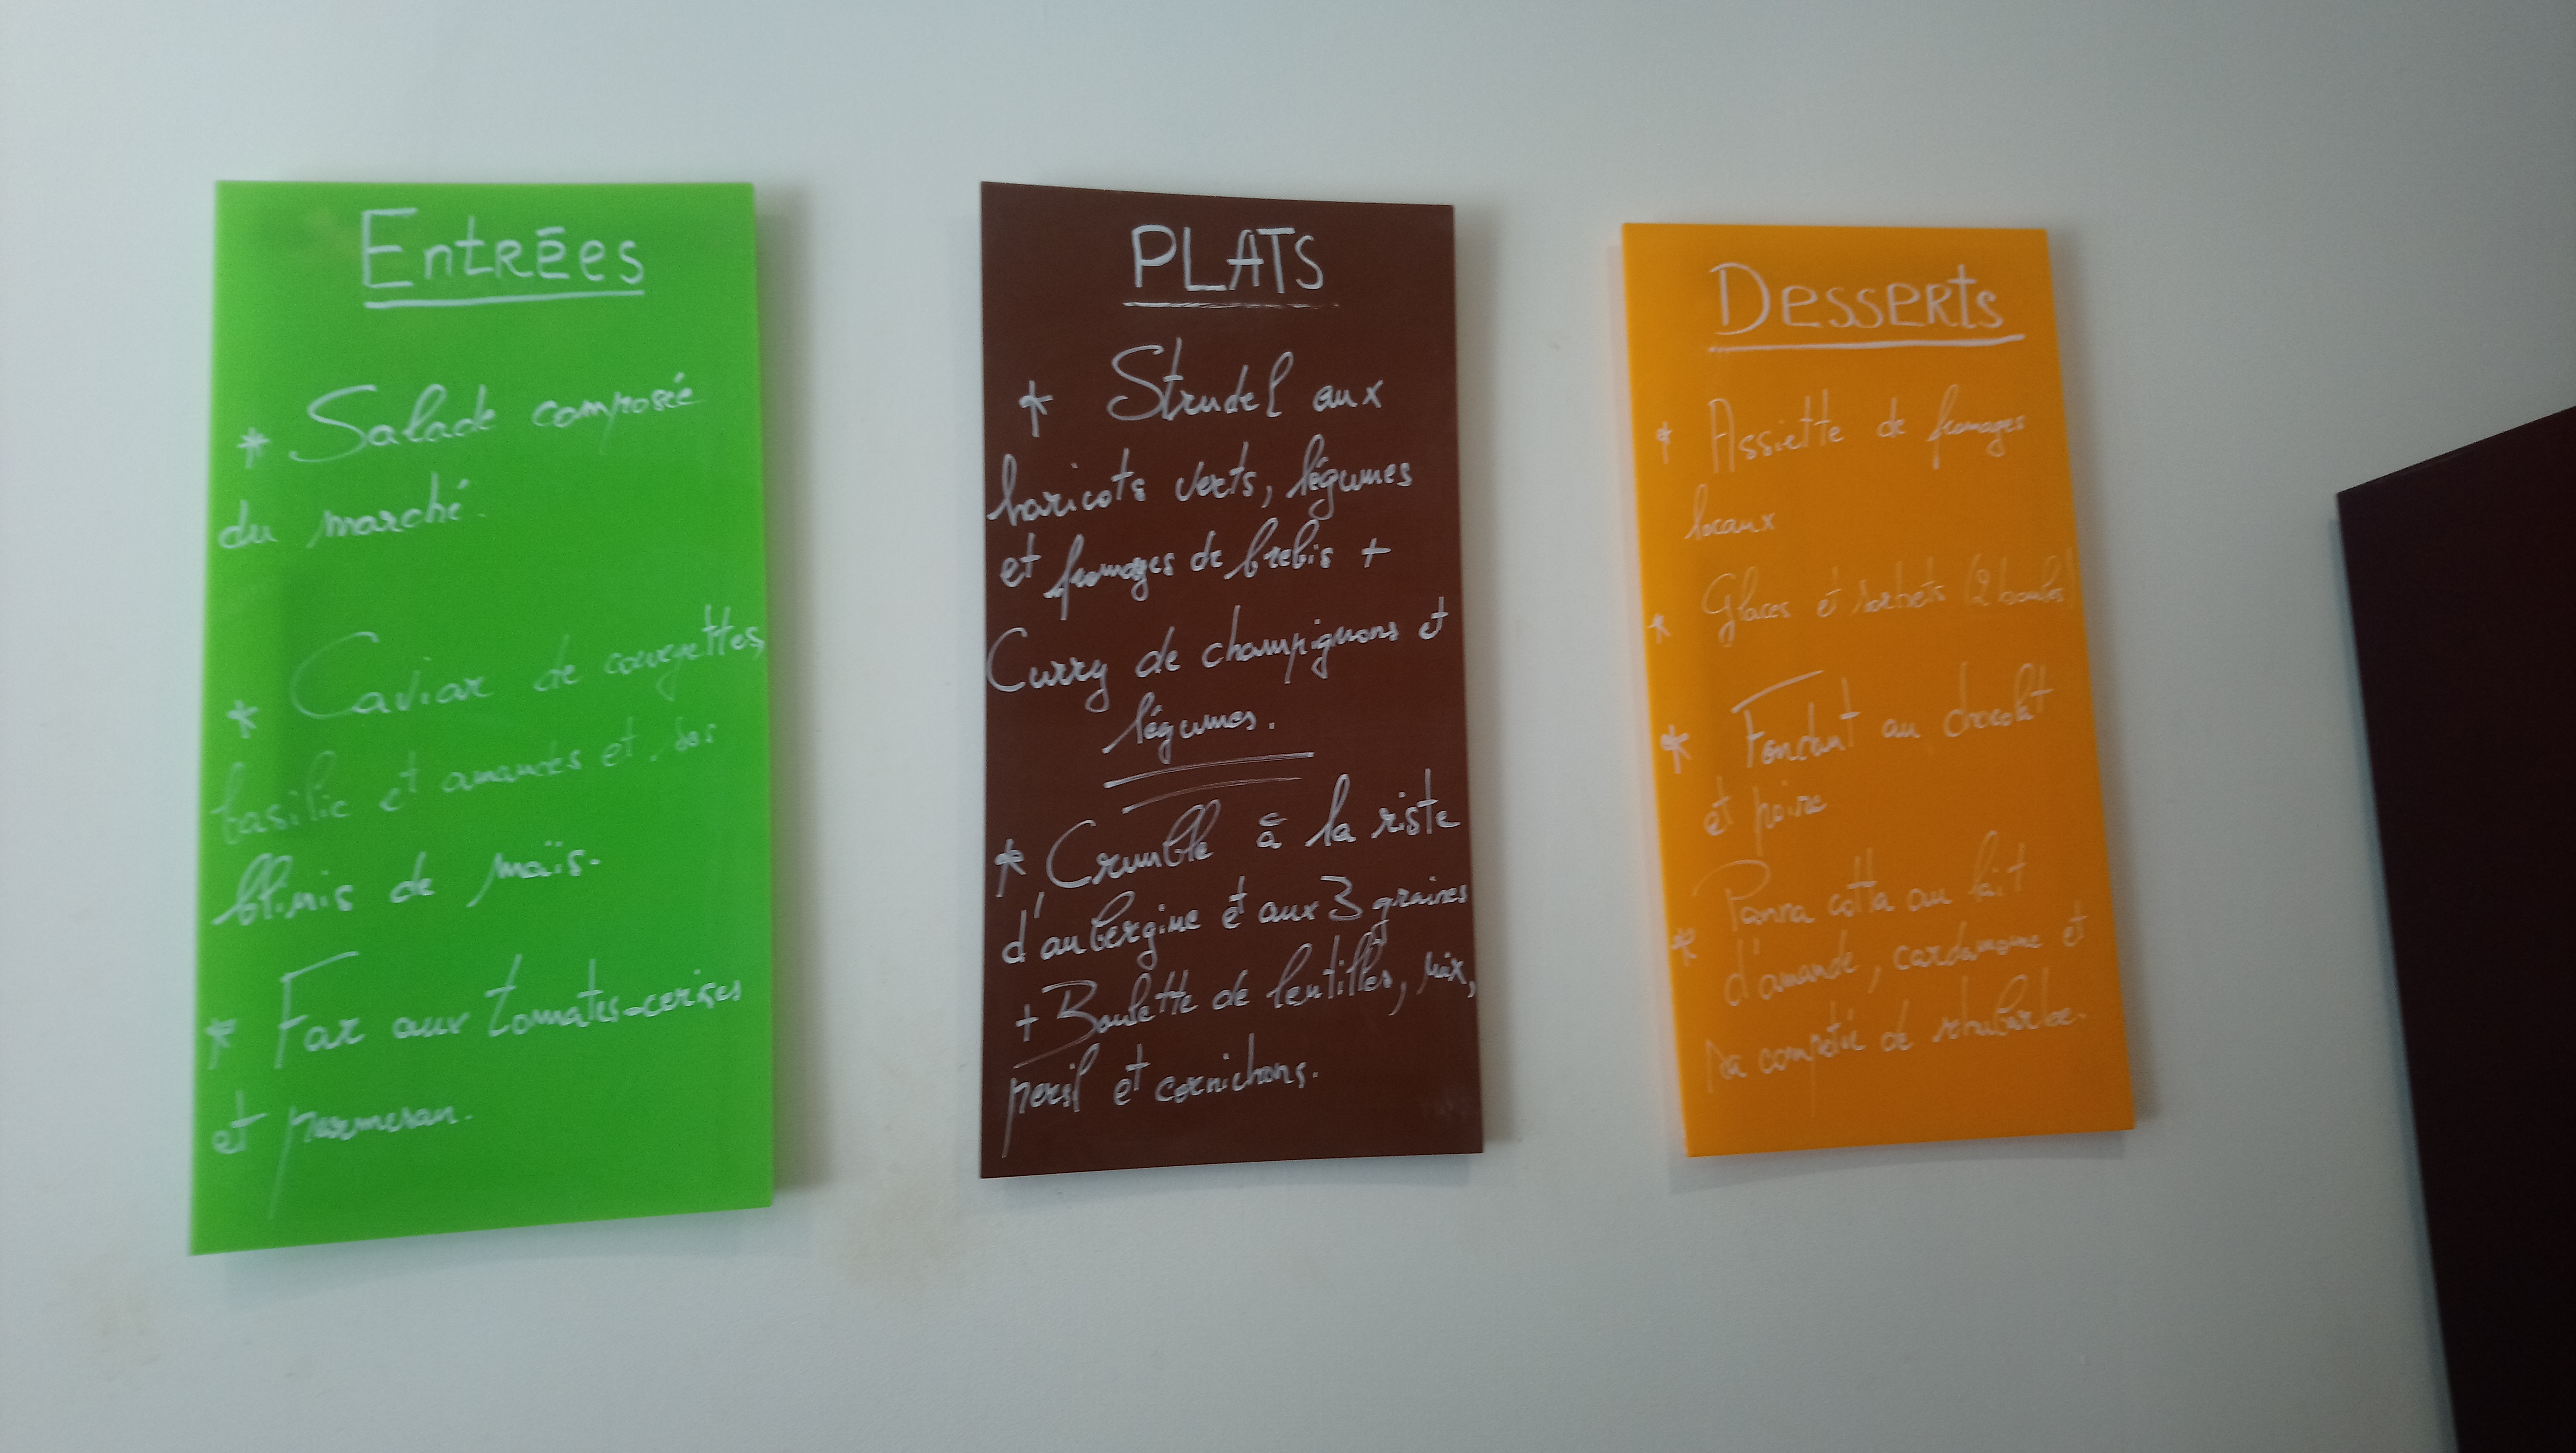 Entrées
* Salade composée
du marché.
* Caviar de courgettes,
basilic et amandes et ses
blinis de maïs.
* Far aux tomates-cerises
et parmesan.
PLATS
* Strudel aux
haricots verts, légumes
et fromages de brebis +
Curry de champignons et
légumes.
* Crumble à la riste
d'aubergine et aux 3 graines
+ Boulette de lentilles, riz,
persil et cornichons.
Desserts
* Assiette de fromages
locaux
* Glaces et sorbets (2 boules)
* Fondant au chocolat
et poire
* Panna cotta au lait
d'amande, cardamome et
sa compotée de rhubarbe.